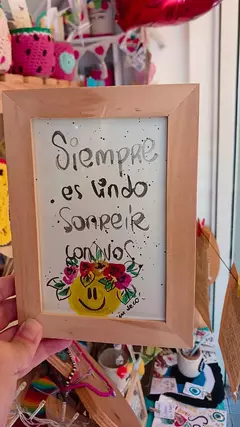 Siempre
es lindo
sonreir
con vos